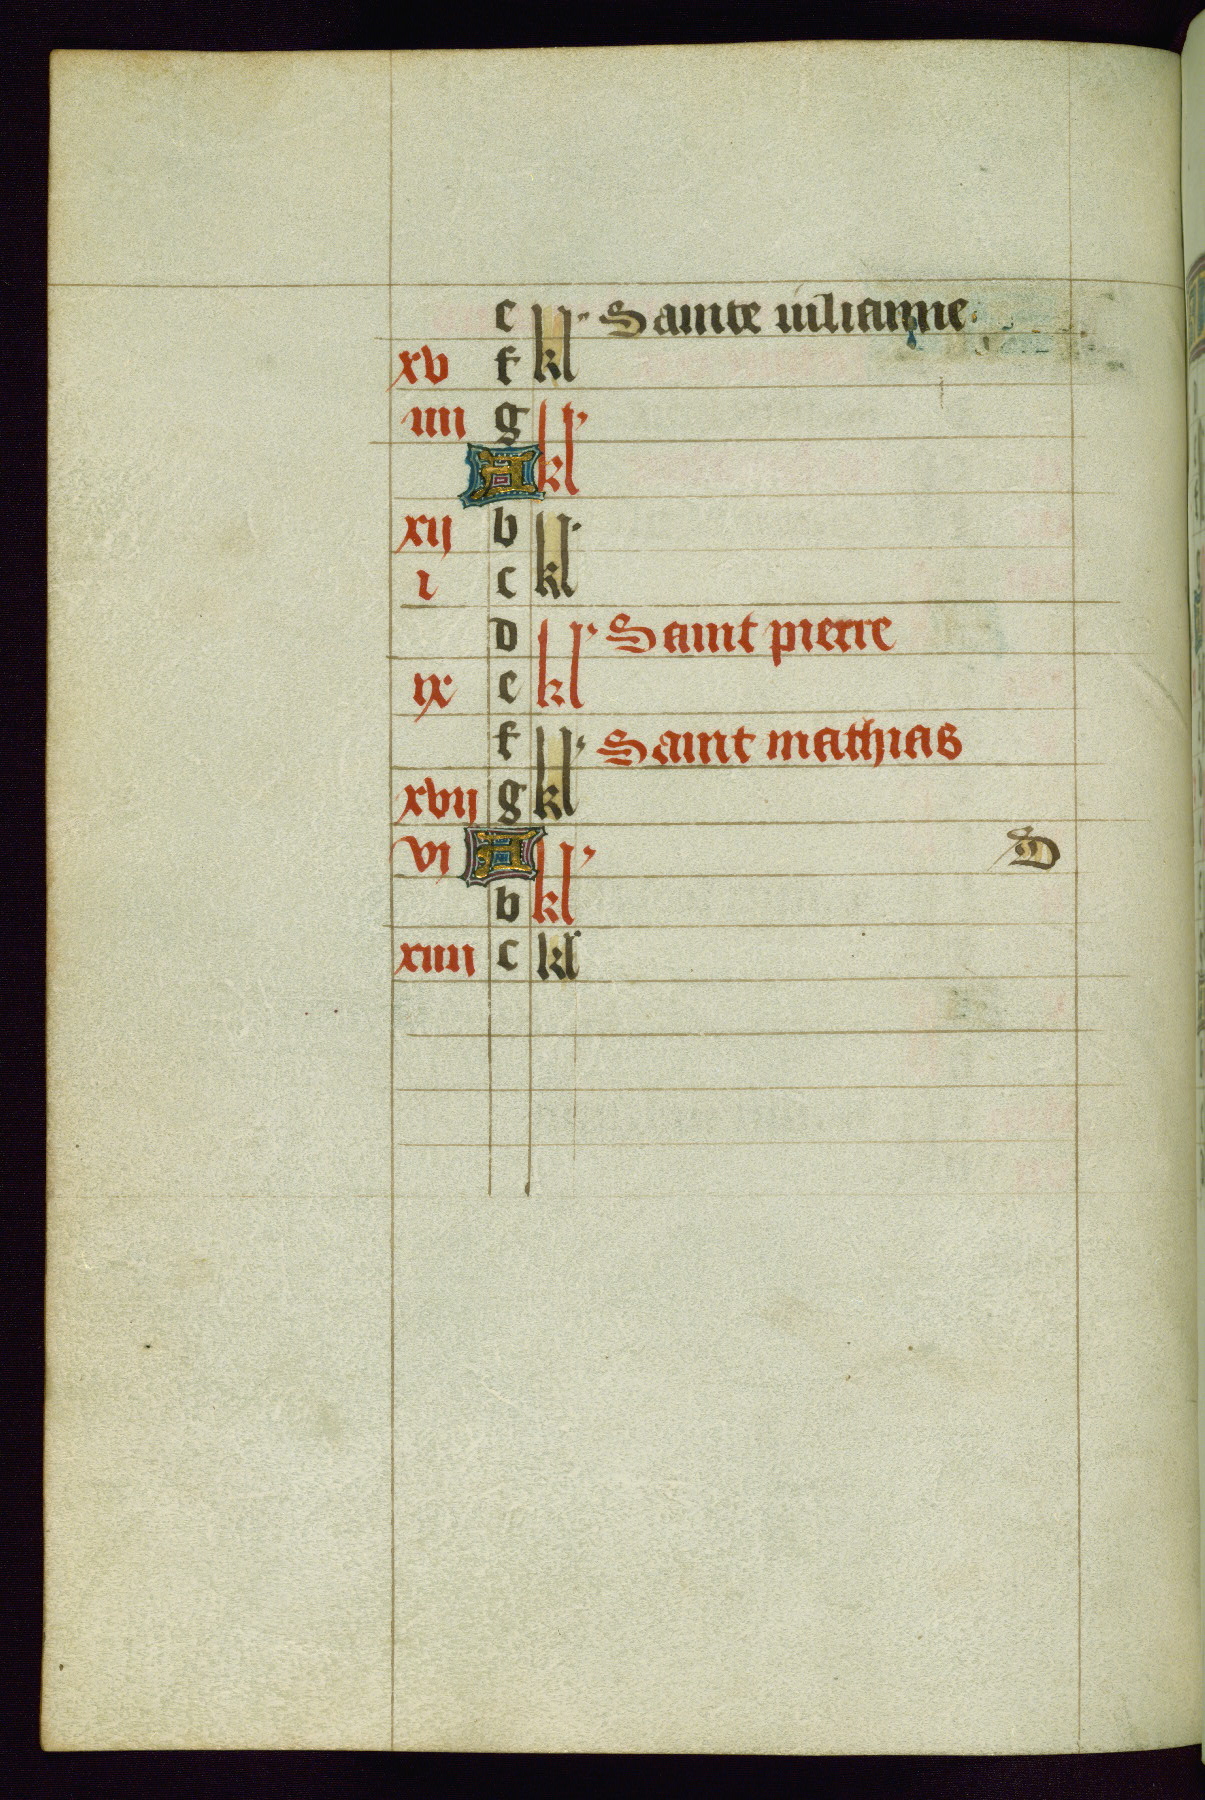 e kl Sainte iulianne
xv f
iiii g kl
A
xij b kl
i c
d kl Saint pierre
ix e
f kl Saint mathias
xvij g
vi A kl D
b
xiiij c kl